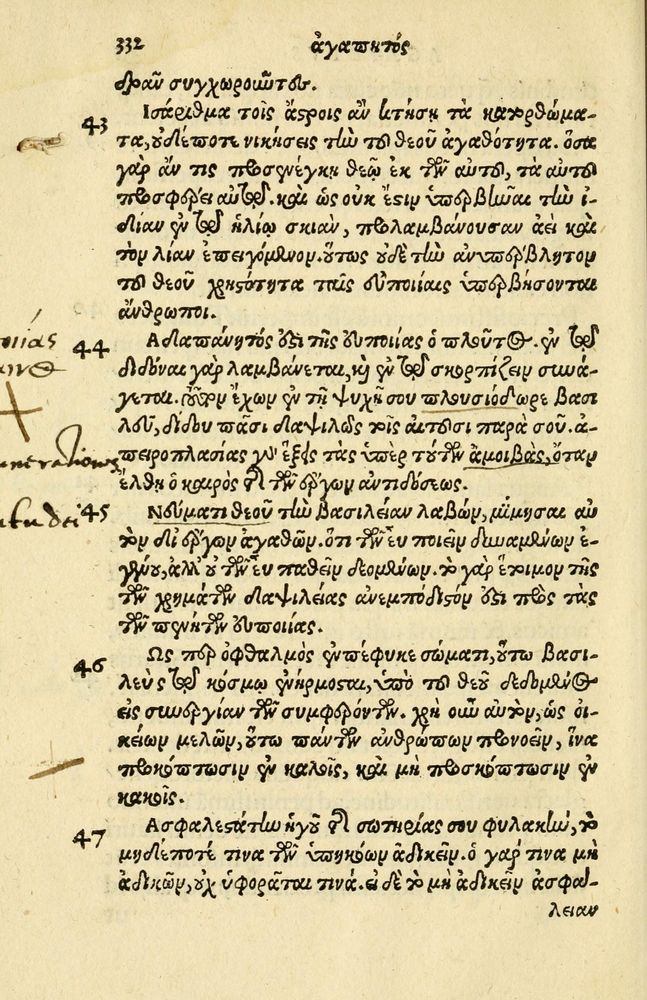 332 ἀγαπητός
δρᾶν συγχωροῦντες.
43 Ισάριθμα τοῖς ἄςροις ἂν κτήσῃ τὰ κατορθώμα-
τα, οὐδέποτε νικήσεις τὴν τοῦ θεοῦ ἀγαθότητα. ὅσα
γὰρ ἄν τις προσενέγκῃ θεῷ ἐκ τῶν αὐτοῦ, τὰ αὐτοῦ
προσφέρει αὐτῷ. καὶ ὡς οὐκ ἔςιν ὑπερβῆναι τὴν ἰ-
δίαν ἐν τῷ ἡλίῳ σκιὰν, προλαμβάνουσαν ἀεὶ καὶ
τὸν λίαν ἐπειγόμενον. οὕτως οὐδὲ τὴν ἀνυπέρβλητον
τοῦ θεοῦ χρηςότητα ταῖς εὐποιίαις ὑπερβήσονται
ἄνθρωποι.
44 Αδαπάνητός ἐςι τῆς εὐποιίας ὁ πλοῦτος. ἐν τῷ
διδόναι γὰρ λαμβάνεται, καὶ ἐν τῷ σκορπίζειν συνά-
γεται. τοῦτον ἔχων ἐν τῇ ψυχῇ σου πλουσιόδωρε βασι
λεῦ, δίδου πᾶσι δαψιλῶς τοῖς αἰτοῦσι παρὰ σοῦ. ἀ-
πειροπλασίας γὰρ ἕξεις τὰς ὑπὲρ τούτων ἀμοιβὰς, ὅταν
ἔλθῃ ὁ καιρὸς τῆς τῶν ἔργων ἀντιδόσεως.
45 Νεύματι θεοῦ τὴν βασιλείαν λαβὼν, μίμησαι αὐ
τὸν δι' ἔργων ἀγαθῶν. ὅτι τῶν εὖ ποιεῖν δυναμένων ἐ-
γένου, ἀλλ' οὐ τῶν εὖ παθεῖν δεομένων. τὸ γὰρ ἕτοιμον τῆς
τῶν χρημάτων δαψιλείας ἀνεμπόδιςόν ἐςι πρὸς τὰς
τῶν πενήτων εὐποιίας.
46 Ως περ ὀφθαλμὸς ἐμπέφυκε σώματι, οὕτω βασι-
λεὺς τῷ κόσμῳ ἐνήρμοςαι, ὑπὸ τοῦ θεοῦ δεδομένος
εἰς συνεργίαν τῶν συμφερόντων. χρὴ οὖν αὐτὸν, ὡς οἰ-
κείων μελῶν, οὕτω πάντων ἀνθρώπων προνοεῖν, ἵνα
προκόπτωσιν ἐν καλοῖς, καὶ μὴ προσκόπτωσιν ἐν
κακοῖς.
47 Ασφαλεςάτην ἡγοῦ τῆς σωτηρίας σου φυλακὴν, τὸ
μηδέποτέ τινα τῶν ὑπηκόων ἀδικεῖν. ὁ γάρ τινα μὴ
ἀδικῶν, οὐχ ὑφορᾶται τινά. εἰ δὲ τὸ μὴ ἀδικεῖν ἀσφά-
λειαν